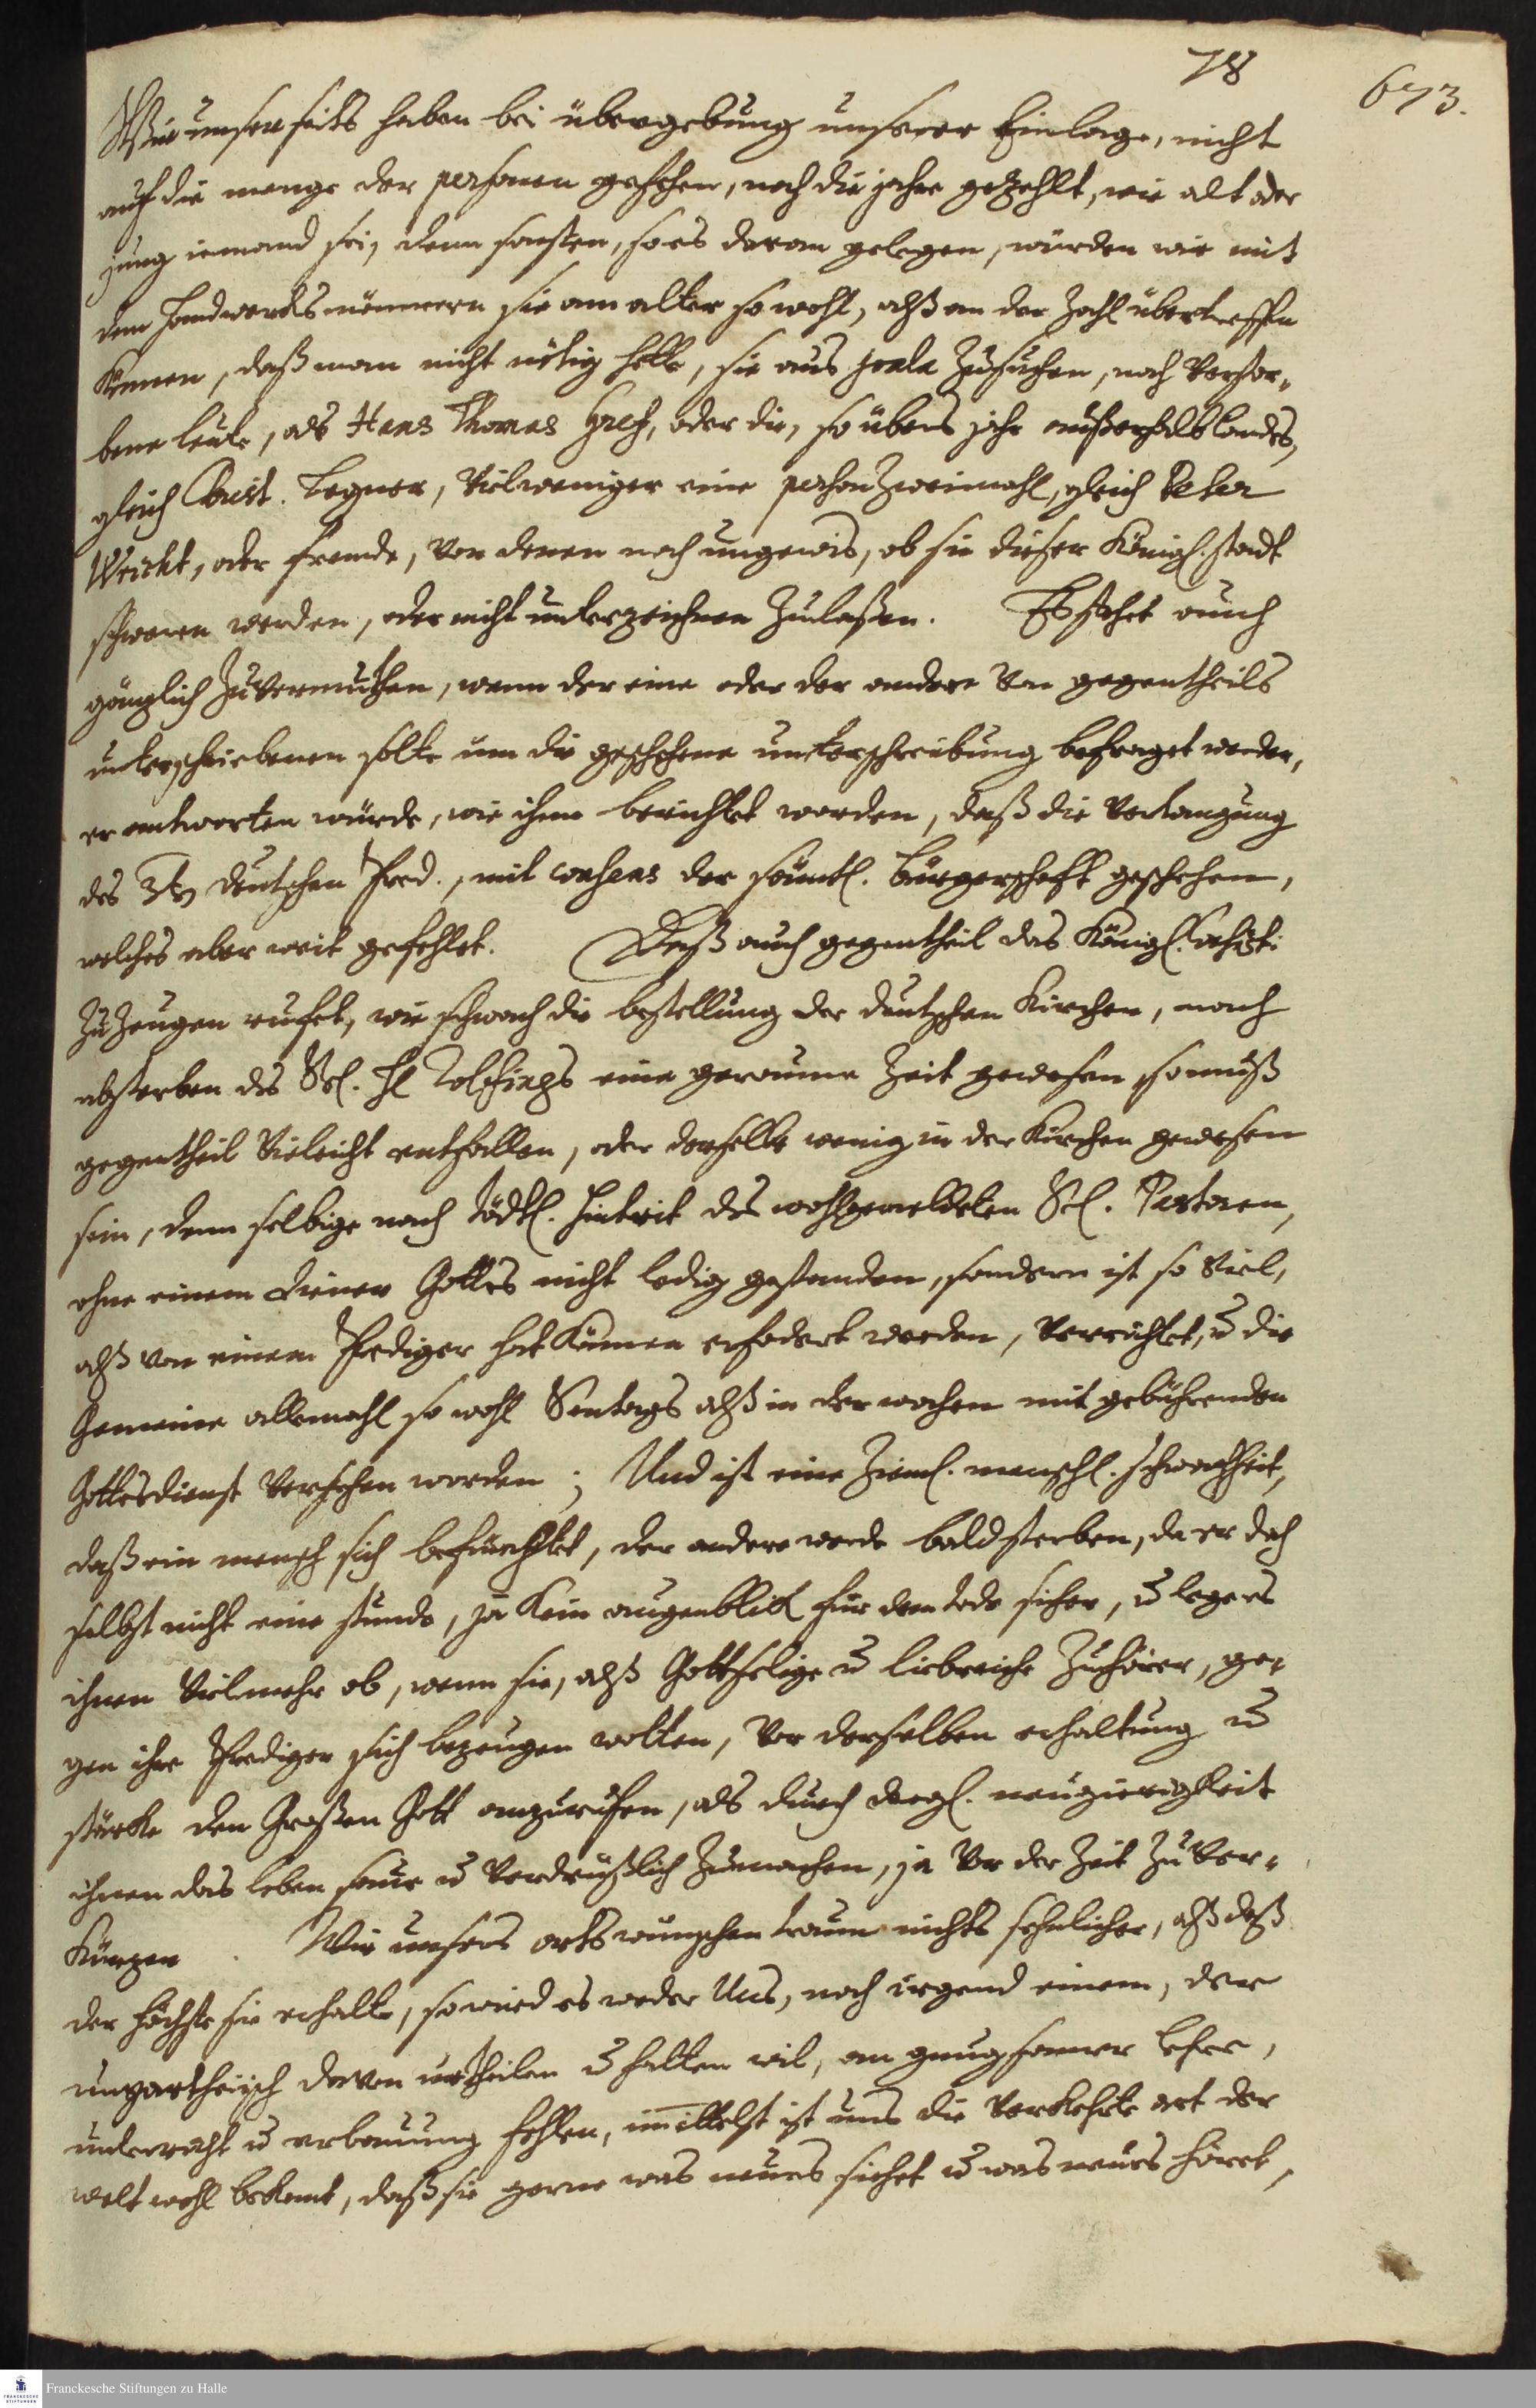 78
673.
Wir unser seits haben bei übergebung unserer Einlage, nicht
auf die menge der personen gesehen, noch die jahre gezehlt, wie alt oder
jung iemand sei, denn sonsten, so es daran gelegen, würden wir mit
den Handwercksmännern sie am alter so wohl, alß an der Zahl übertreffen
können, daß man nicht nötig hette, sie aus zusuchen, noch verstor-
bene leute, als Hans Thomas Gref, oder die, so übers jahr außerhalb landes,
gleich Christ. Legner, Vielweniger eine person Zweimahl, gleich Peter
Weicht, oder fremde, von denen noch ungewis, ob sie dieser Königl. stadt
schweren werden, oder nicht unterzeichnen Zulaßen. Es stehet auch
gänzlich Zuvermuthen, wenn der eine oder der andere von gegentheils
unterschriebenen solte um die geschehene unterschreibung befraget werden,
er antworten würde, wie ihm berichtet worden, daß die Verlangung
des 3ten deutschen Pred., mit consens der sämtl. bürgerschafft geschehen,
welches aber weit gefehlet. Daß auch gegentheil das Königl.
Zu Zeugen ruffet, wie schwach die bestellung der deutschen Kirchen, nach
absterben des Sel. H. eine geraume Zeit gewesen, so muß
gegentheil Vieleicht entfallen, oder derselbe wenig in der Kirchen gewesen
sein, denn selbige nach tödtl. hintrit des wohlgemeldeten Sel. Pastoren,
ohne einem diener Gottes nicht ledig gestanden, sondern ist so viel,
alß von einem Prediger hat können erfodert werden, verrichtet, u die
Gemeine allemahl so wohl Sontags alß in der wochen mit gebührenden
Gottesdienst versehen worden; Und ist eine Ziml. menschl. schwachheit,
daß ein mensch sich befürchtet, der andere werde bald sterben, da er doch
selbst nicht eine stunde, ja kein augenblick für dem tode sicher, u lege es
ihnen vielmehr ob, wenn sie, alß Gottselige u liebreiche Zuhörer, ge-
gen ihre Prediger sich bezeugen wolten, vor derselben erhaltung u
stärcke den Großen Gott anzuruffen, als durch dergl. neugierigkeit
ihnen das leben sauer u verdrüßlich Zumachen, ja vor der Zeit Zu ver-
kürzen. Wir unsers orts wünschen traun nichts sehnlicher, alß daß
der höchste sie erhalte, so wird es weder Uns, noch irgend einem, der
unpartheiisch davon urtheilen u halten wil, an gnugsamer lehre,
unterricht u erbauung fehlen, immittelst ist uns die verkehrte art der
welt wohl bekant, daß sie gerne was neues siehet u was neues höret,
Franckesche Stiftungen zu Halle